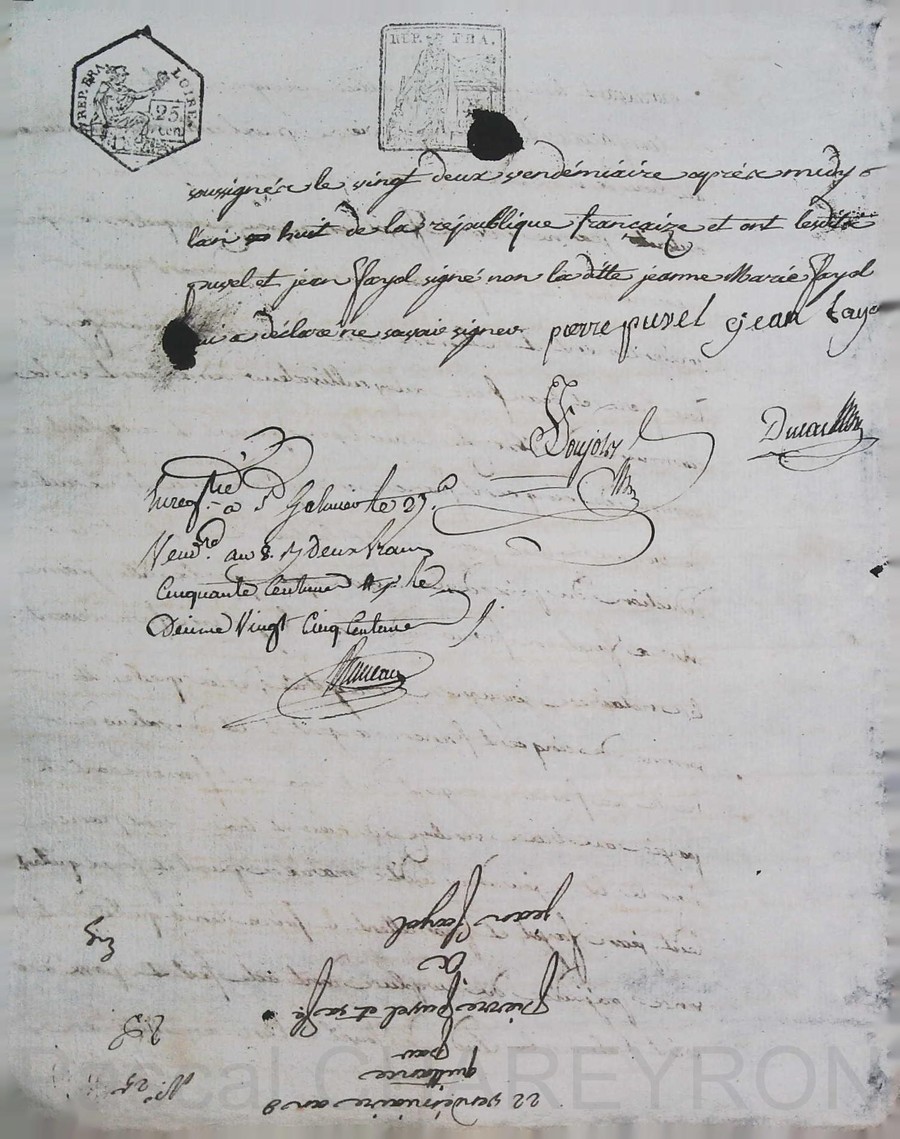 REP. FRA. LOIRE
25
REP. FRA.
soussignés le vingt deux vendémiaire après midy
l'an huit de la république francaize et ont lesdits
puvel et jean ffayol signé non la ditte jeanne Marie ffayol
a déclaré ne savoir signer pierre puvel jean fayo
Enregtré à St Galmier le 23
Vendre an 8. deux francs
Cinquante Centimes
Décime Vingt Cinq Centimes
22 vendémiaire an 8
quittance
par
pierre puvel et sa fe
a
jean ffayol
No. 25
Pascal CHAREYRON